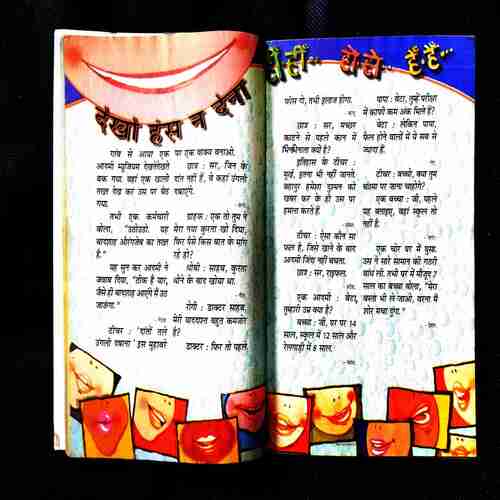 देखो हंस न देना
हीं हीं... हो हो... हैं हैं...
गांव से आया एक
आदमी म्यूजियम देखतेदेखते
थक गया. वहां एक खाली
तख्त देख कर उस पर बैठ
गया.
तभी एक कर्मचारी
बोला, "उठोउठो. यह
बादशाह औरंगजेब का तख्त
है."
यह सुन कर आदमी ने
जवाब दिया, "ठीक है यार,
जैसे ही बादशाह आएंगे मैं उठ
जाऊंगा."
टीचर : 'दांतों तले
उंगली दबाना' इस मुहावरे
पर एक वाक्य बनाओ.
छात्र : सर, जिन के
दांत नहीं हैं, वे कहां उंगली
दबाएंगे.
ग्राहक : एक तो तुम ने
मेरा नया कुरता खो दिया,
फिर पैसे किस बात के मांग
रहे हो?
धोबी : साहब, कुरता
धोने के बाद खोया था.
रोगी : डाक्टर साहब,
मेरी याददाश्त बहुत कमजोर
है?
डाक्टर : फिर तो पहले
फीस दो, तभी इलाज होगा.
छात्र : सर, मच्छर
काटने से पहले कान में
भिनभिनाता क्यों है?
इतिहास के टीचर :
मूर्ख, इतना भी नहीं जानते.
बहादुर हमेशा दुश्मन को
खबर कर के ही उस पर
हमला करते हैं.
टीचर : ऐसा कौन सा
फल है, जिसे खाने के बाद
आदमी जिंदा नहीं बचता.
छात्र : सर, राइफल.
एक आदमी : बेटा,
तुम्हारी उम्र क्या है?
बच्चा : जी, घर पर 14
साल, स्कूल में 12 साल और
रेलगाड़ी में 8 साल.
पापा : बेटा, तुम्हें परीक्षा
में काफी कम अंक मिले हैं?
बेटा : लेकिन पापा,
फेल होने वालों में ये सब से
ज्यादा हैं.
टीचर : बच्चो, क्या तुम
चंद्रमा पर जाना चाहोगे?
एक बच्चा : जी, पहले
यह बताइए, वहां स्कूल तो
नहीं है.
एक चोर घर में घुसा.
उस ने सारे सामान की गठरी
बांध ली. तभी घर में मौजूद 7
साल का बच्चा बोला, "मेरा
बस्ता भी ले जाओ, वरना मैं
शोर मचा दूंगा."